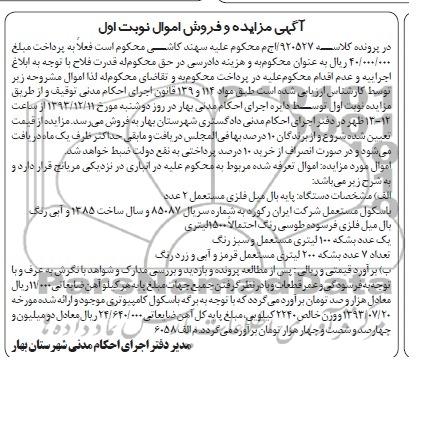 آگهی مزایده و فروش اموال نوبت اول
در پرونده کلاسه ۹۲۰۵۲۷/ اج م محکوم علیه سهند کاشی محکوم است فعلاً به پرداخت مبلغ
۴۰/۰۰۰/۰۰۰ ریال به عنوان محکوم‌به و هزینه دادرسی در حق محکوم‌له قدرت فلاح با توجه به ابلاغ
اجراییه و عدم اقدام محکوم‌علیه در پرداخت محکوم‌به و تقاضای محکوم‌له لذا اموال مشروحه زیر
توسط کارشناس ارزیابی شده است طبق مواد ۱۱۴ و ۱۳۹ قانون اجرای احکام مدنی توقیف و از طریق
مزایده نوبت اول توسط دایره اجرای احکام مدنی بهار در روز دوشنبه مورخ ۱۳۹۳/۱۲/۱۱ از ساعت
۱۲-۱۳ ظهر در دفتر اجرای احکام مدنی دادگستری شهرستان بهار به فروش می‌رسد. مزایده از قیمت
تعیین شده شروع و از برندگان ۱۰ درصد بهاء فی‌المجلس دریافت و مابقی حداکثر ظرف یک ماه دریافت
می‌شود و در صورت انصراف از خرید ۱۰ درصد پرداختی به نفع دولت ضبط خواهد شد.
اموال مورد مزایده: اموال تعرفه شده مربوط به محکوم علیه در انباری در نزدیکی مریانج قرار دارد و
به شرح زیر می‌باشد:
الف) مشخصات دستگاه: پایه بال میل فلزی مستعمل ۲ عدد
باسکول مستعمل شرکت ایران رکورد به شماره سریال ۸۵۰۸۷ و سال ساخت ۱۳۸۵ و آبی رنگ
بال میل فلزی فرسوده طوسی رنگ احتمالاً ۱۵۰۰ لیتری
یک عدد بشکه ۱۰۰ لیتری مستعمل و سبز رنگ
تعداد ۷ عدد بشکه ۲۰۰ لیتری مستعمل قرمز و آبی و زرد رنگ
ب) برآورد قیمتی و ریالی: پس از مطالعه پرونده و بازدید و بررسی مدارک و شواهد با نگرش به عرف و با
توجه به فرسودگی و عمر قطعات و با در نظر گرفتن جمیع جهات مبلغ پایه هر کیلو آهن ضایعاتی ۱۱/۰۰۰ ریال
معادل هزار و صد تومان برآورد می‌گردد که با توجه به برگه باسکول کامپیوتری موجود و ارائه شده مورخه
۱۳۹۳/۰۷/۲۰ و وزن خالص ۲۲۴۰ کیلویی مبلغ پایه کل آهن ضایعاتی ۲۴/۶۴۰/۰۰۰ ریال معادل دو میلیون و
چهارصد و شصت و چهار هزار تومان برآورد می‌گردد. م الف ۶۰۵۸
مدیر دفتر اجرای احکام مدنی شهرستان بهار